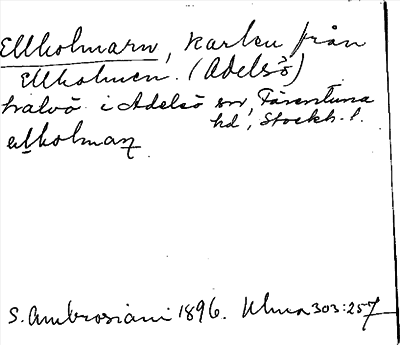 Ellholmarn, karlen från
Ellholmen. (Adelsö)
halvö i Adelsö sn, Färentuna
hd, Stockh. l.
elholman
S. Ambrosiani 1896. Ulma 303:257